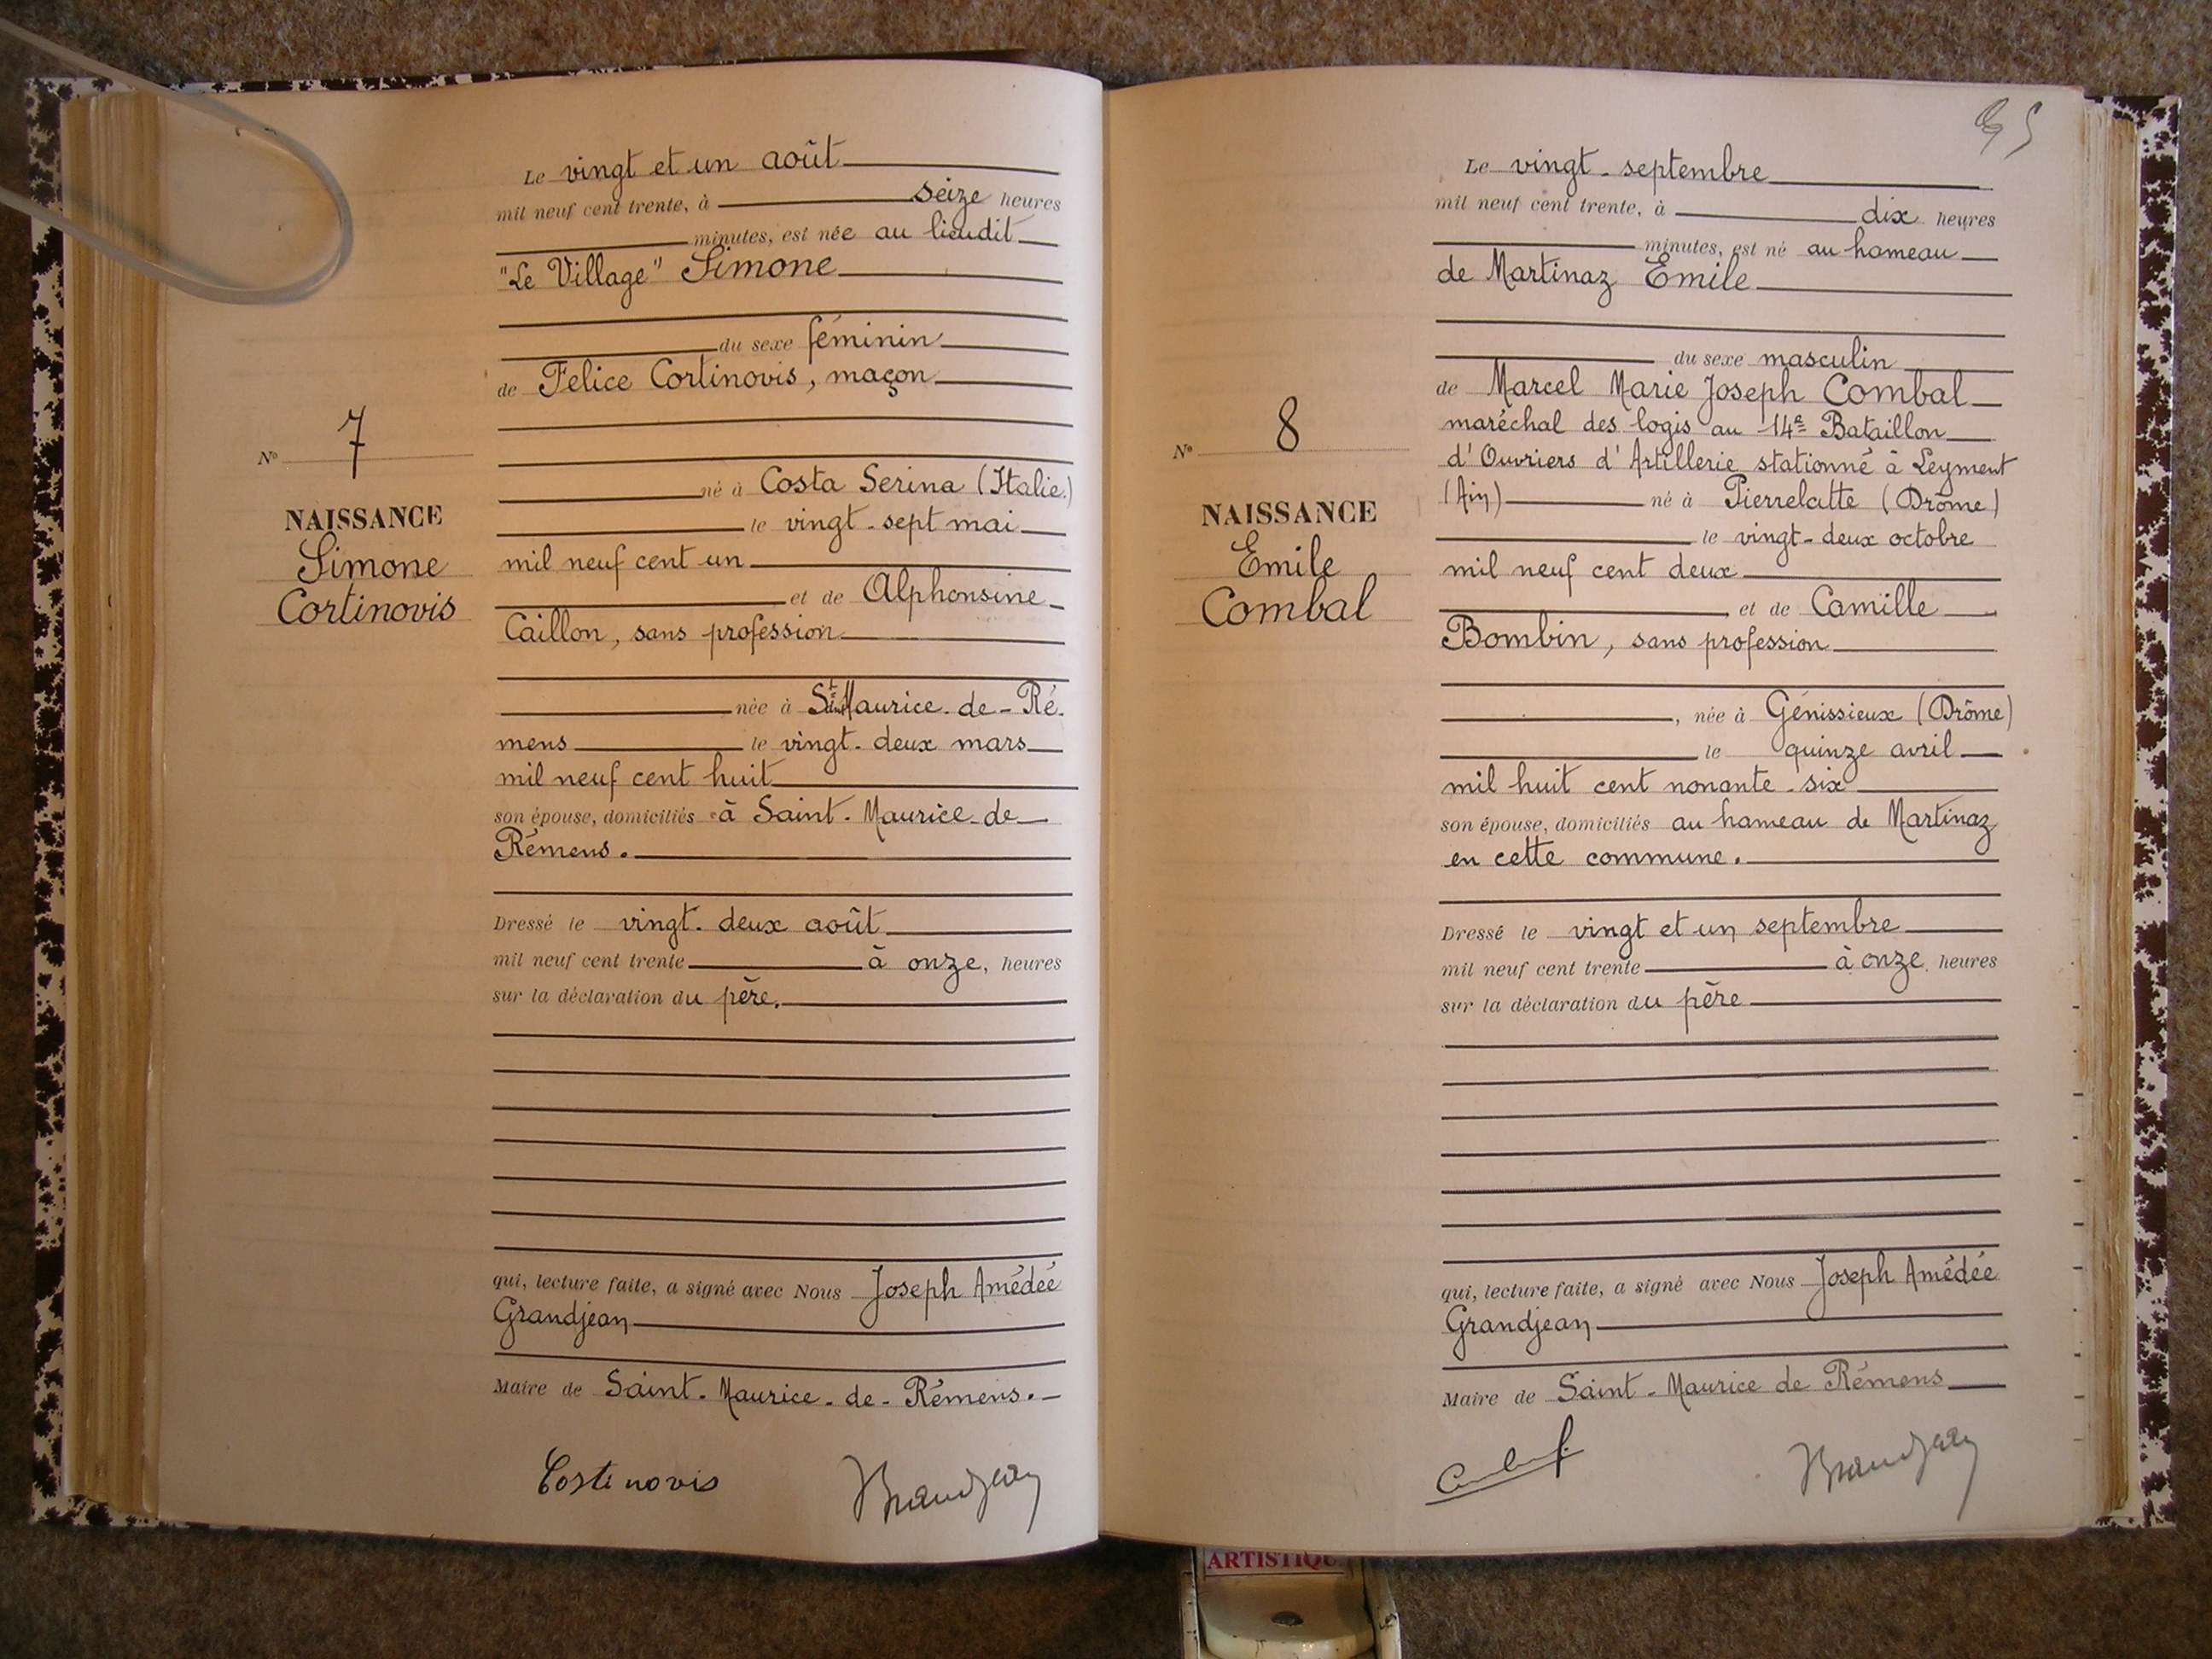 Le vingt et un août
mil neuf cent trente, à seize heures
minutes, est née au lieudit
"Le Village" Simone
du sexe féminin
de Felice Cortinovis, maçon
né à Costa Serina (Italie)
le vingt-sept mai
mil neuf cent un
et de Alphonsine
Caillon, sans profession
née à St Maurice-de-Ré-
mens le vingt-deux mars
mil neuf cent huit
son épouse, domiciliés à Saint-Maurice-de-
Rémens.
Dressé le vingt-deux août
mil neuf cent trente à onze, heures
sur la déclaration du père.
qui, lecture faite, a signé avec Nous Joseph Amédée
Grandjean
Maire de Saint-Maurice-de-Rémens.
Cortinovis Grandjean
N° 7
NAISSANCE
Simone
Cortinovis
Le vingt-septembre
mil neuf cent trente, à dix heures
minutes, est né au hameau
de Martinaz Emile
du sexe masculin
de Marcel Marie Joseph Combal
maréchal des logis au 14e Bataillon
d'Ouvriers d'Artillerie stationné à Leyment
(Ain) né à Pierrelatte (Drôme)
le vingt-deux octobre
mil neuf cent deux
et de Camille
Bombin, sans profession
, née à Génissieux (Drôme)
le quinze avril
mil huit cent nonante-six
son épouse, domiciliés au hameau de Martinaz
en cette commune.
Dressé le vingt et un septembre
mil neuf cent trente à onze heures
sur la déclaration du père
qui, lecture faite, a signé avec Nous Joseph Amédée
Grandjean
Maire de Saint-Maurice de Rémens
Grandjean
N° 8
NAISSANCE
Emile
Combal
ARTISTIQUE